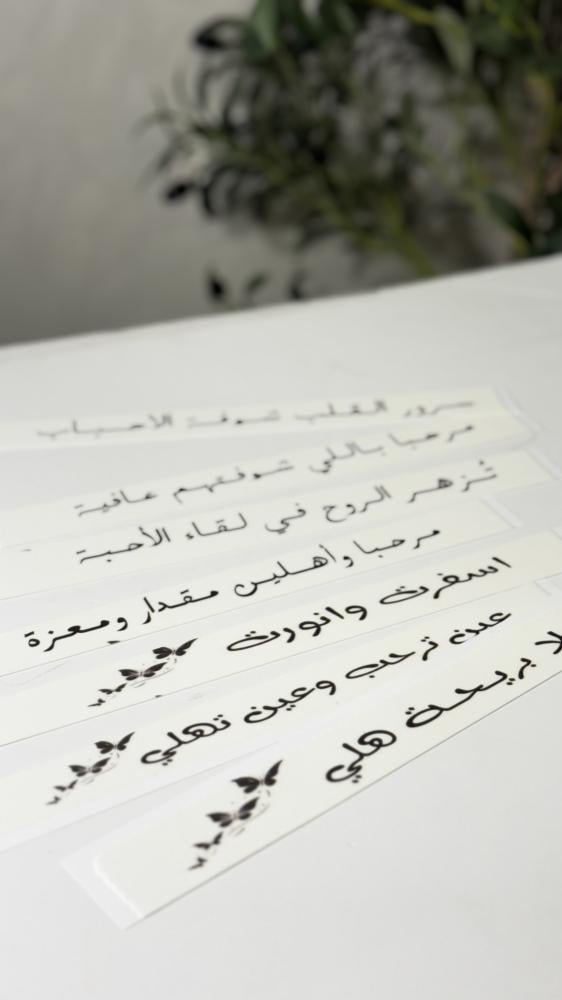 سرور القلب شوفة الأحباب
مرحبا باللي شوفتهم عافية
تُزهر الروح في لقاء الأحبة
مرحبا وأهلين مقدار ومعزة
اسفرت وانورت
عين ترحب وعين تهلي
لا بريحة هلي